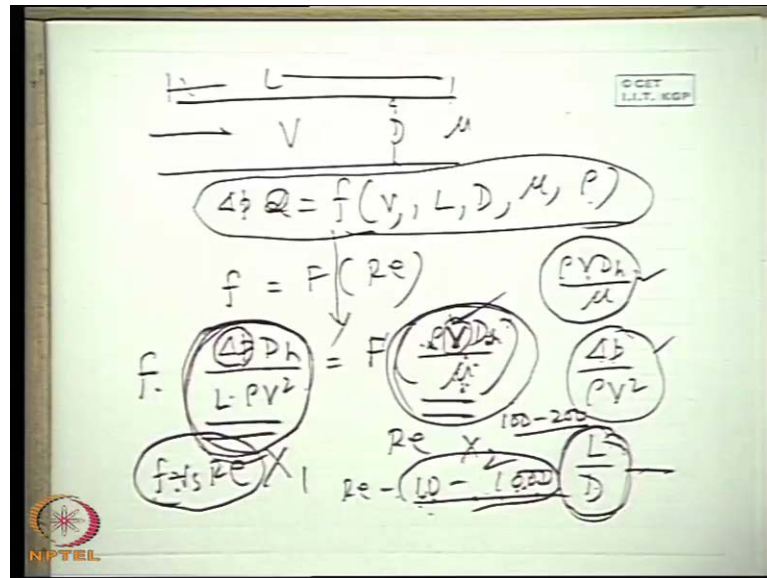 L
© CET
I.I.T. KGP
V D μ
Δp = f(V, L, D, μ, ρ)
f = F(Re)
ρVDh/μ
f. Δp Dh / L·ρV² = F(ρVDh/μ)
Δp/ρV²
Re X₂ 100-200
f-vs Re X₁ Re - 10 - 1000 L/D
NPTEL